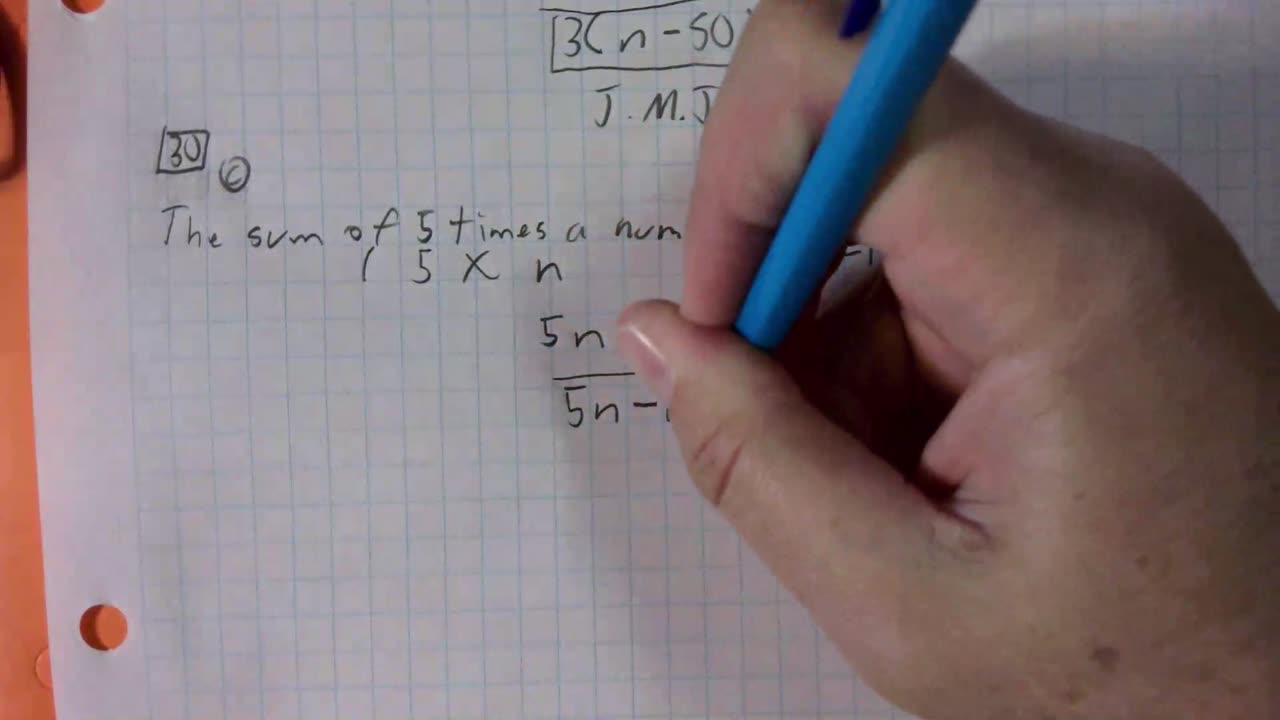 3(n-50
J.M.J
30 c
The sum of 5 times a num
( 5 × n
5n
5n-